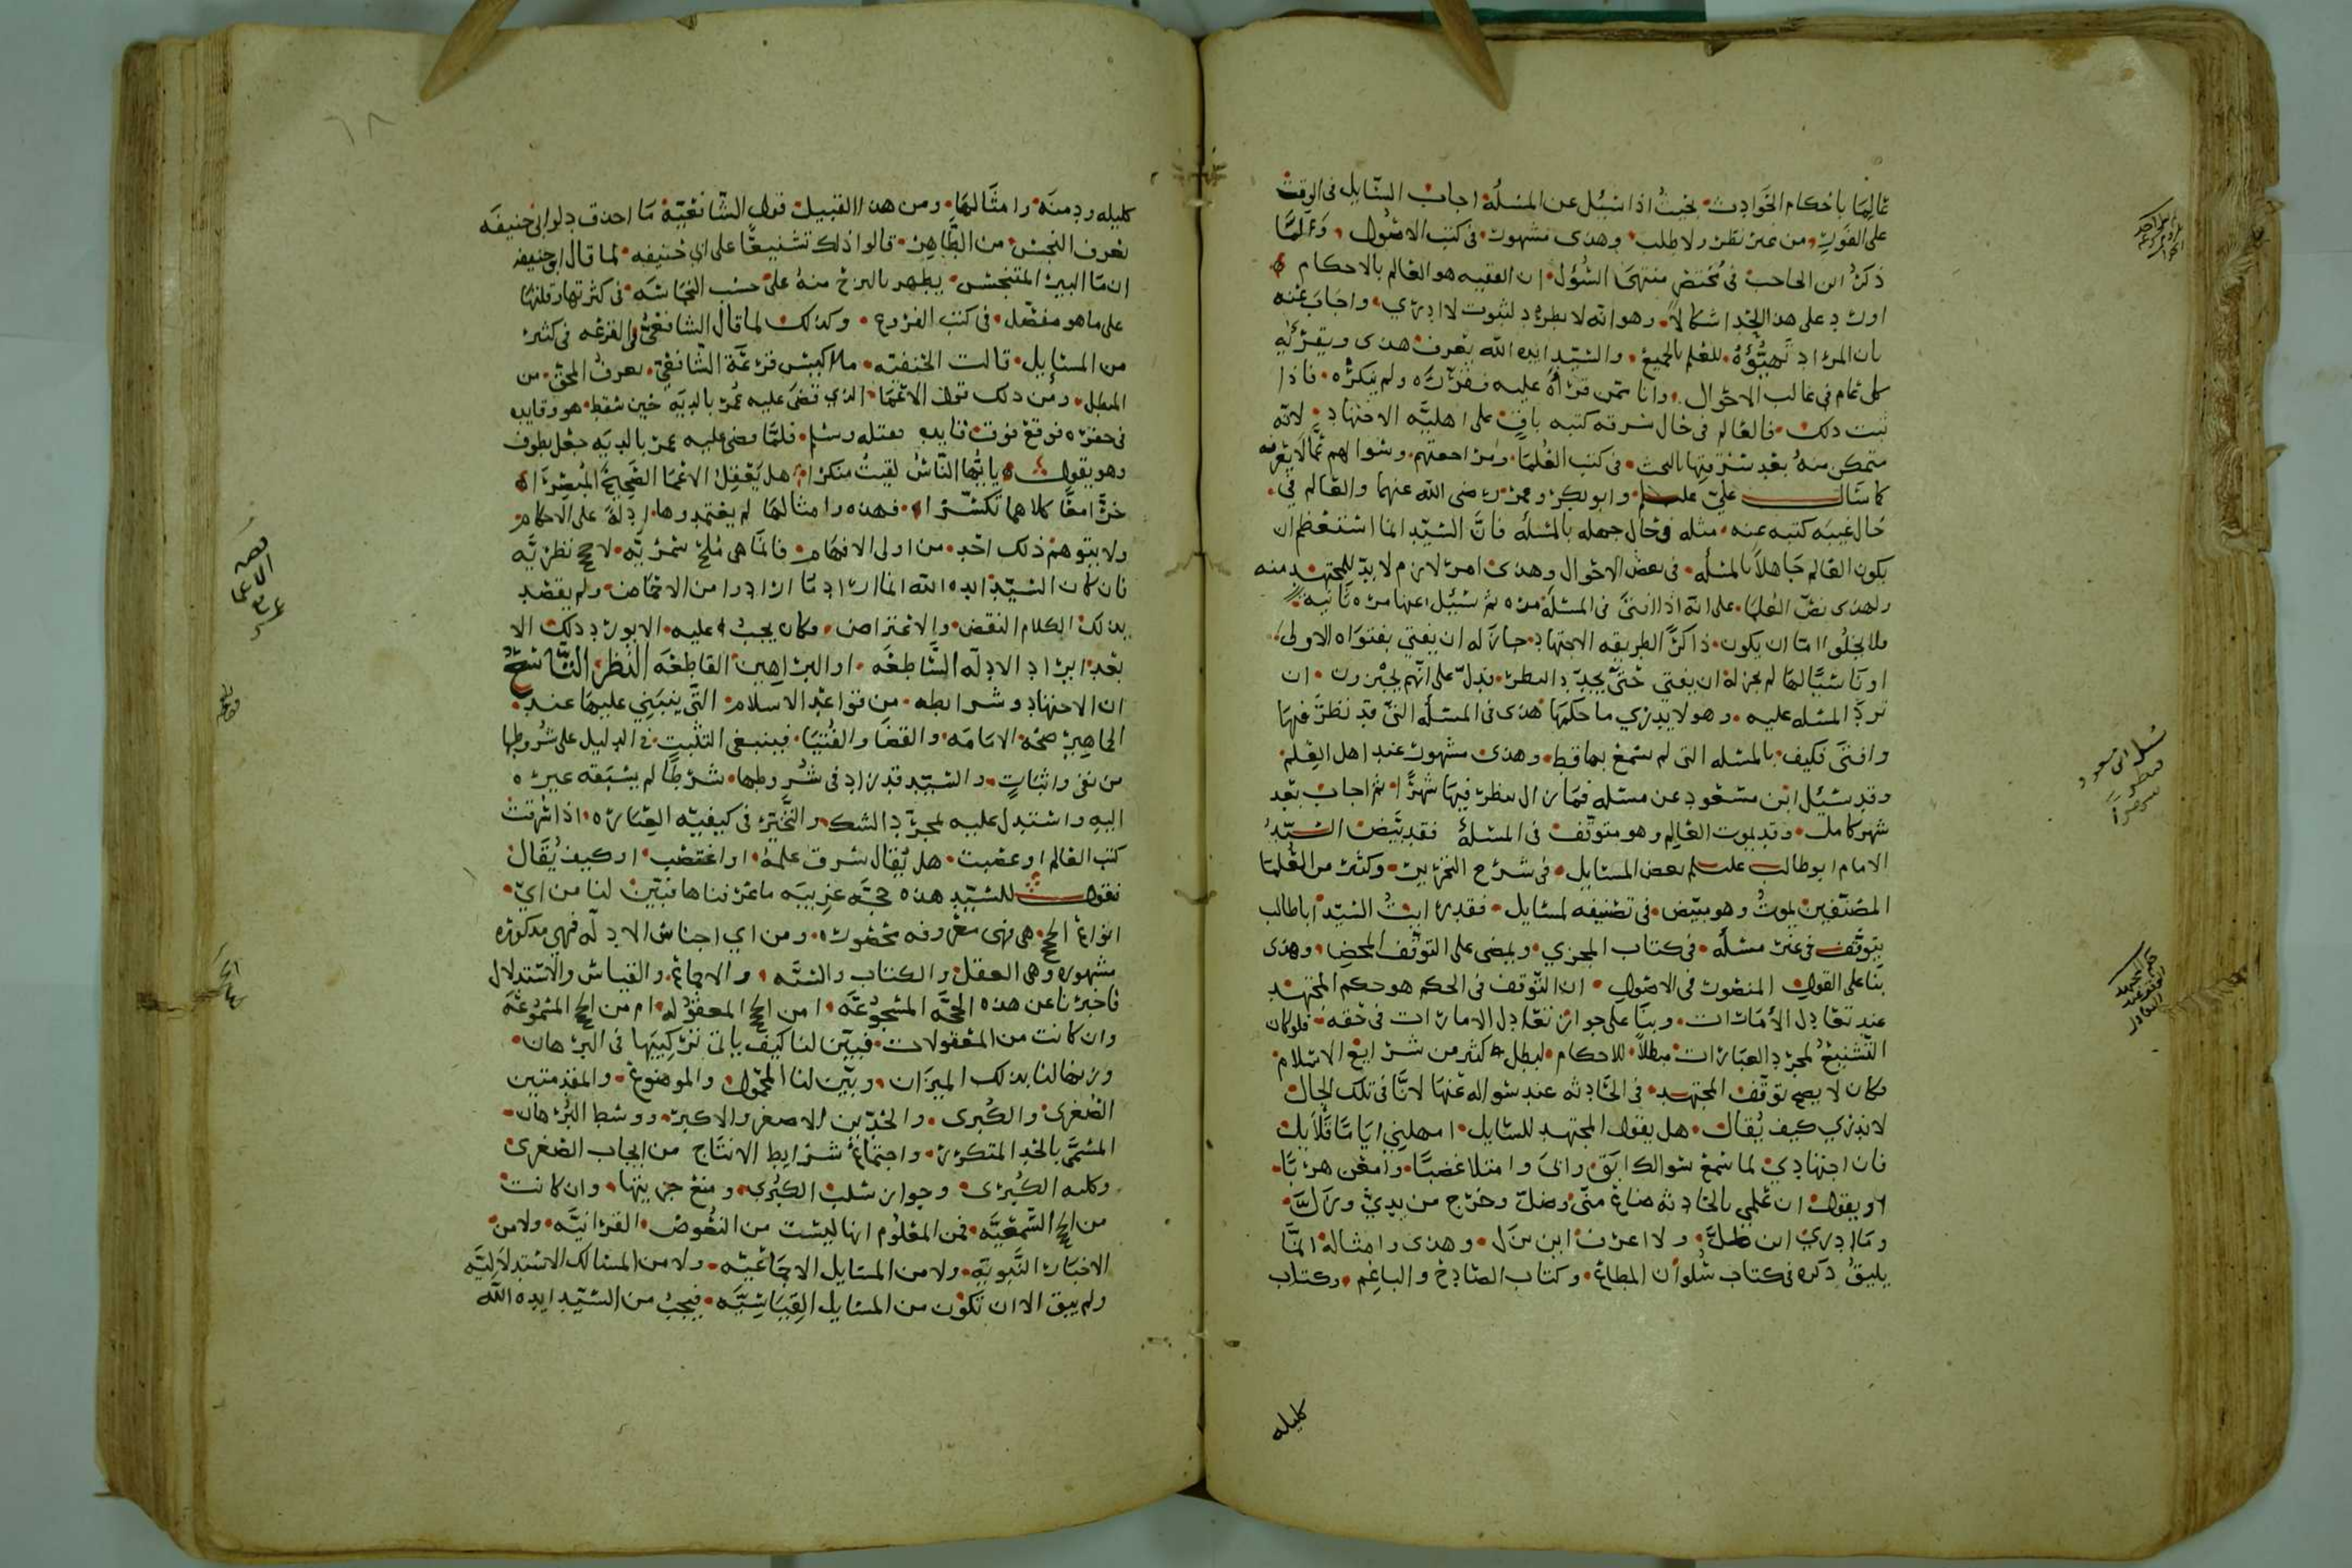 عالما باحكام الحوادث بحيث اذا سئل عن المسئلة اجاب السايل في الوقت
على الفور من غير نظر ولا طلب وهذى مشهور في كتب الاصول ولما
ذكر ابن الحاجب في مختصر منتهى السؤل ان الفقيه هو العالم بالاحكام
اورد على هذا الحد اشكالا وهو انه لا يطرد لثبوت لا ادري واجاب عنه
بان المراد تهيؤه للعلم بالجميع والسيد ايده الله يعرف هذى ويقرئه
كل عام في غالب الاحوال وانا ممن قرأه عليه فقرره ولم ينكره فاذا
ثبت ذلك فالعالم في حال سرقة كتبه باق على اهلية الاجتهاد لانه
متمكن منه بعد سرقتها بالبحث في كتب العلما ومراجعتهم وسوالهم عما لا يعرفه
كما سال علي علم وابو بكر وعمر رضى الله عنهما والعالم في
حال غيبة كتبه عنه مثله في حال جهله بالمسئلة فان السيد انما استعظم ان
يكون العالم جاهلا بالمسئله في بعض الاحوال وهذى امر لازم لا بد للمجتهد منه
ولهذى نص العلما على انه اذا افتى في المسئلة مره ثم سئل عنها مره ثانيه
فلا يخلوا اما ان يكون ذاكرا لطريقه الاجتهاد جاز له ان يفتي بفتواه الاولى
او ناسيا لها لم يجز له ان يفتي حتى يجدد النظر فدل على انهم يجيزون ان
ترد المسئله عليه وهو لا يدري ما حكمها هذى في المسئلة التي قد نظر فيها
وافتى فكيف بالمسئله التى لم يسمع بها قط وهذى مشهور عند اهل العلم
وقد سئل ابن مسعود عن مسئله فما زال ينظر فيها شهرا ثم اجاب بعد
شهر كامل وقد يموت العالم وهو متوقف في المسئلة فقد بيض السيد
الامام ابو طالب علسلم بعض المسايل في شرح التحرير وكثير من العلما
المصنفين يموت وهو مبيض في تصنيفه لمسايل فقد رايت السيد ابا طالب
يتوقف في غير مسئله في كتاب المجزي ويمضى على التوقف المحض وهذى
بنا على القول المنصور في الاصول ان التوقف في الحكم هو حكم المجتهد
عند تعادل الأمارات وبنا على جواز تعادل الامارات في حقه فلو كان
التشنيع لمجرد العبارات مبطلا للاحكام لبطل كثير من شرايع الاسلام
فكان لا يصح توقف المجتهد في الحادثه عند سواله عنها لانا في تلك الحال
لا ندري كيف يقال هل يقول المجتهد للسايل امهلني اياما قلايل
فان اجتهادي لما سمع سوالك ابق وانى وامتلا غضبا وامعن هربا
او يقول ان علمي بالحادثه ضاع منى وضل وخرج من يدي وزل
وما ادري اين ضل ولا اعرف اين نزل وهذى وامثاله انما
يليق ذكره في كتاب سلوان المطاع وكتاب الصادح والباغم وكتاب
كليله
سئل ابن مسعود
فنظر
شهرا
حكم المجتهد
التوقف عند
التعادل
كليله ودمنه وامثالها ومن هذا القبيل قول الشافعية ما احذق دلو ابي حنيفه
يعرف النجس من الطاهر قالوا ذلك تشنيعا على ابي حنيفه لما قال ابو حنيفه
ان ما البير المتنجس يطهر بالنزح منه على حسب النجاسه في كثرتها وقلتها
على ما هو مفصل في كتب الفروع وكذلك لما قال الشافعي بالقرعه في كثير
من المسايل قالت الحنفيه ما اكيس قرعة الشافعي يعرف المحق من
المبطل ومن ذلك قول الاعما الذي قضى عليه عمر بالديه حين سقط هو وقايده
في حفره فوقع فوق قايده فقتله وسلم فلما قضى عليه عمر بالديه جعل يطوف
وهو يقول يا ايها الناس لقيت منكرا هل يعقل الاعما الصحيح المبصرا
خرا معا كلاهما تكسرا فهذه وامثالها لم يعتمدوها ادلة على الاحكام
ولا يتوهم ذلك احد من اولى الافهام فانما هى ملح سمريه لا حجج نظريه
فان كان السيد ايده الله انما اراد ما ارادوا من الاحماض ولم يقصد
بذلك الكلام النقض والاعتراض فكان يجب عليه الا يورد ذلك الا
بعد ايراد الادله الساطعه او البراهين القاطعه النظر التاسع
ان الاجتهاد وشرايطه من قواعد الاسلام التي ينبني عليها عند
الجماهير صحة الامامه والقضا والفتيا فينبغى التثبت في الدليل على شروطها
من نفى واثبات والسيد قد زاد في شروطها شرطا لم يسبقه غيره
اليه واستدل عليه بمجرد الشك والتحير في كيفيه العباره اذا سرقت
كتب العالم او غصبت هل يقال سرق علمه او اغتصب او كيف يقال
فنقول للسيد هذه حجه غريبه ما عرفناها فبين لنا من اي
انواع الحجج هى فهى معروفه محصوره ومن اي اجناس الادله فهي مذكوره
مشهوره وهى العقل والكتاب والسنه والاجماع والقياس والاستدلال
فاخبرنا عن هذه الحجه المسجوعه امن الحجج المعقوله ام من الحجج المسموعه
وان كانت من المعقولات فبين لنا كيف ياتي تركيبها في البرهان
وزنها لنا بذلك الميزان وبين لنا المحمول والموضوع والمقدمتين
الصغرى والكبرى والحدين الاصغر والاكبر ووسط البرهان
المسمى بالحد المتكرر واجتماع شرايط الانتاج من ايجاب الصغرى
وكليه الكبرى وجواز سلب الكبرى ومنع جزييتها وان كانت
من الحجج السمعيه فمن المعلوم انها ليست من النصوص القرانيه ولا من
الاخبار النبويه ولا من المسايل الاجماعيه ولا من المسالك الاستدلاليه
ولم يبق الا ان تكون من المسايل القياسيه فيجب من السيد ايده الله
قصه
الاعمى